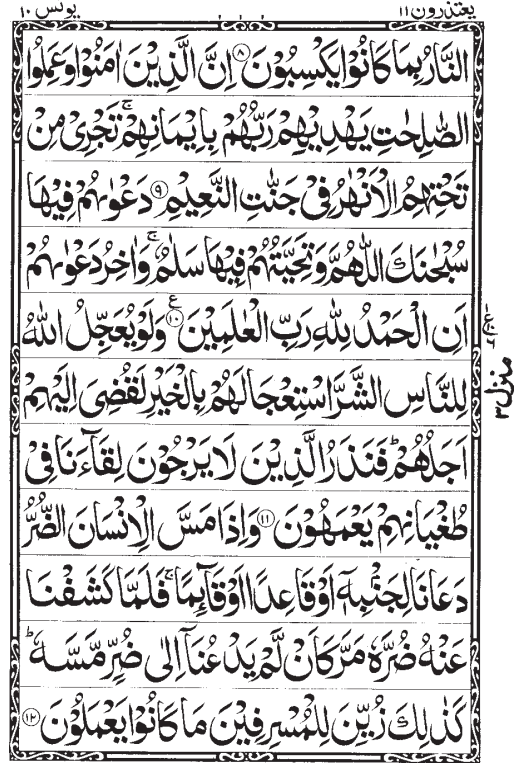 یعتذرون ۱۱
یونس ۱۰
النَّارُ بِمَا كَانُوْا يَكْسِبُوْنَ ۸ اِنَّ الَّذِيْنَ اٰمَنُوْا وَعَمِلُوا
الصّٰلِحٰتِ يَهْدِيْهِمْ رَبُّهُمْ بِاِيْمَانِهِمْ ۚ تَجْرِىْ مِنْ
تَحْتِهِمُ الْاَنْهٰرُ فِىْ جَنّٰتِ النَّعِيْمِ ۹ دَعْوٰىهُمْ فِيْهَا
سُبْحٰنَكَ اللّٰهُمَّ وَتَحِيَّتُهُمْ فِيْهَا سَلٰمٌ ۚ وَاٰخِرُ دَعْوٰىهُمْ
اَنِ الْحَمْدُ لِلّٰهِ رَبِّ الْعٰلَمِيْنَ ۱۰ ع وَلَوْ يُعَجِّلُ اللّٰهُ
لِلنَّاسِ الشَّرَّ اسْتِعْجَالَهُمْ بِالْخَيْرِ لَقُضِىَ اِلَيْهِمْ
اَجَلُهُمْ ؕ فَنَذَرُ الَّذِيْنَ لَا يَرْجُوْنَ لِقَآءَنَا فِىْ
طُغْيَانِهِمْ يَعْمَهُوْنَ ۱۱ وَاِذَا مَسَّ الْاِنْسَانَ الضُّرُّ
دَعَانَا لِجَنْۢبِهٖۤ اَوْ قَاعِدًا اَوْ قَآئِمًا ۚ فَلَمَّا كَشَفْنَا
عَنْهُ ضُرَّهٗ مَرَّ كَاَنْ لَّمْ يَدْعُنَاۤ اِلٰى ضُرٍّ مَّسَّهٗ ؕ
كَذٰلِكَ زُيِّنَ لِلْمُسْرِفِيْنَ مَا كَانُوْا يَعْمَلُوْنَ ۱۲
منزل ۳